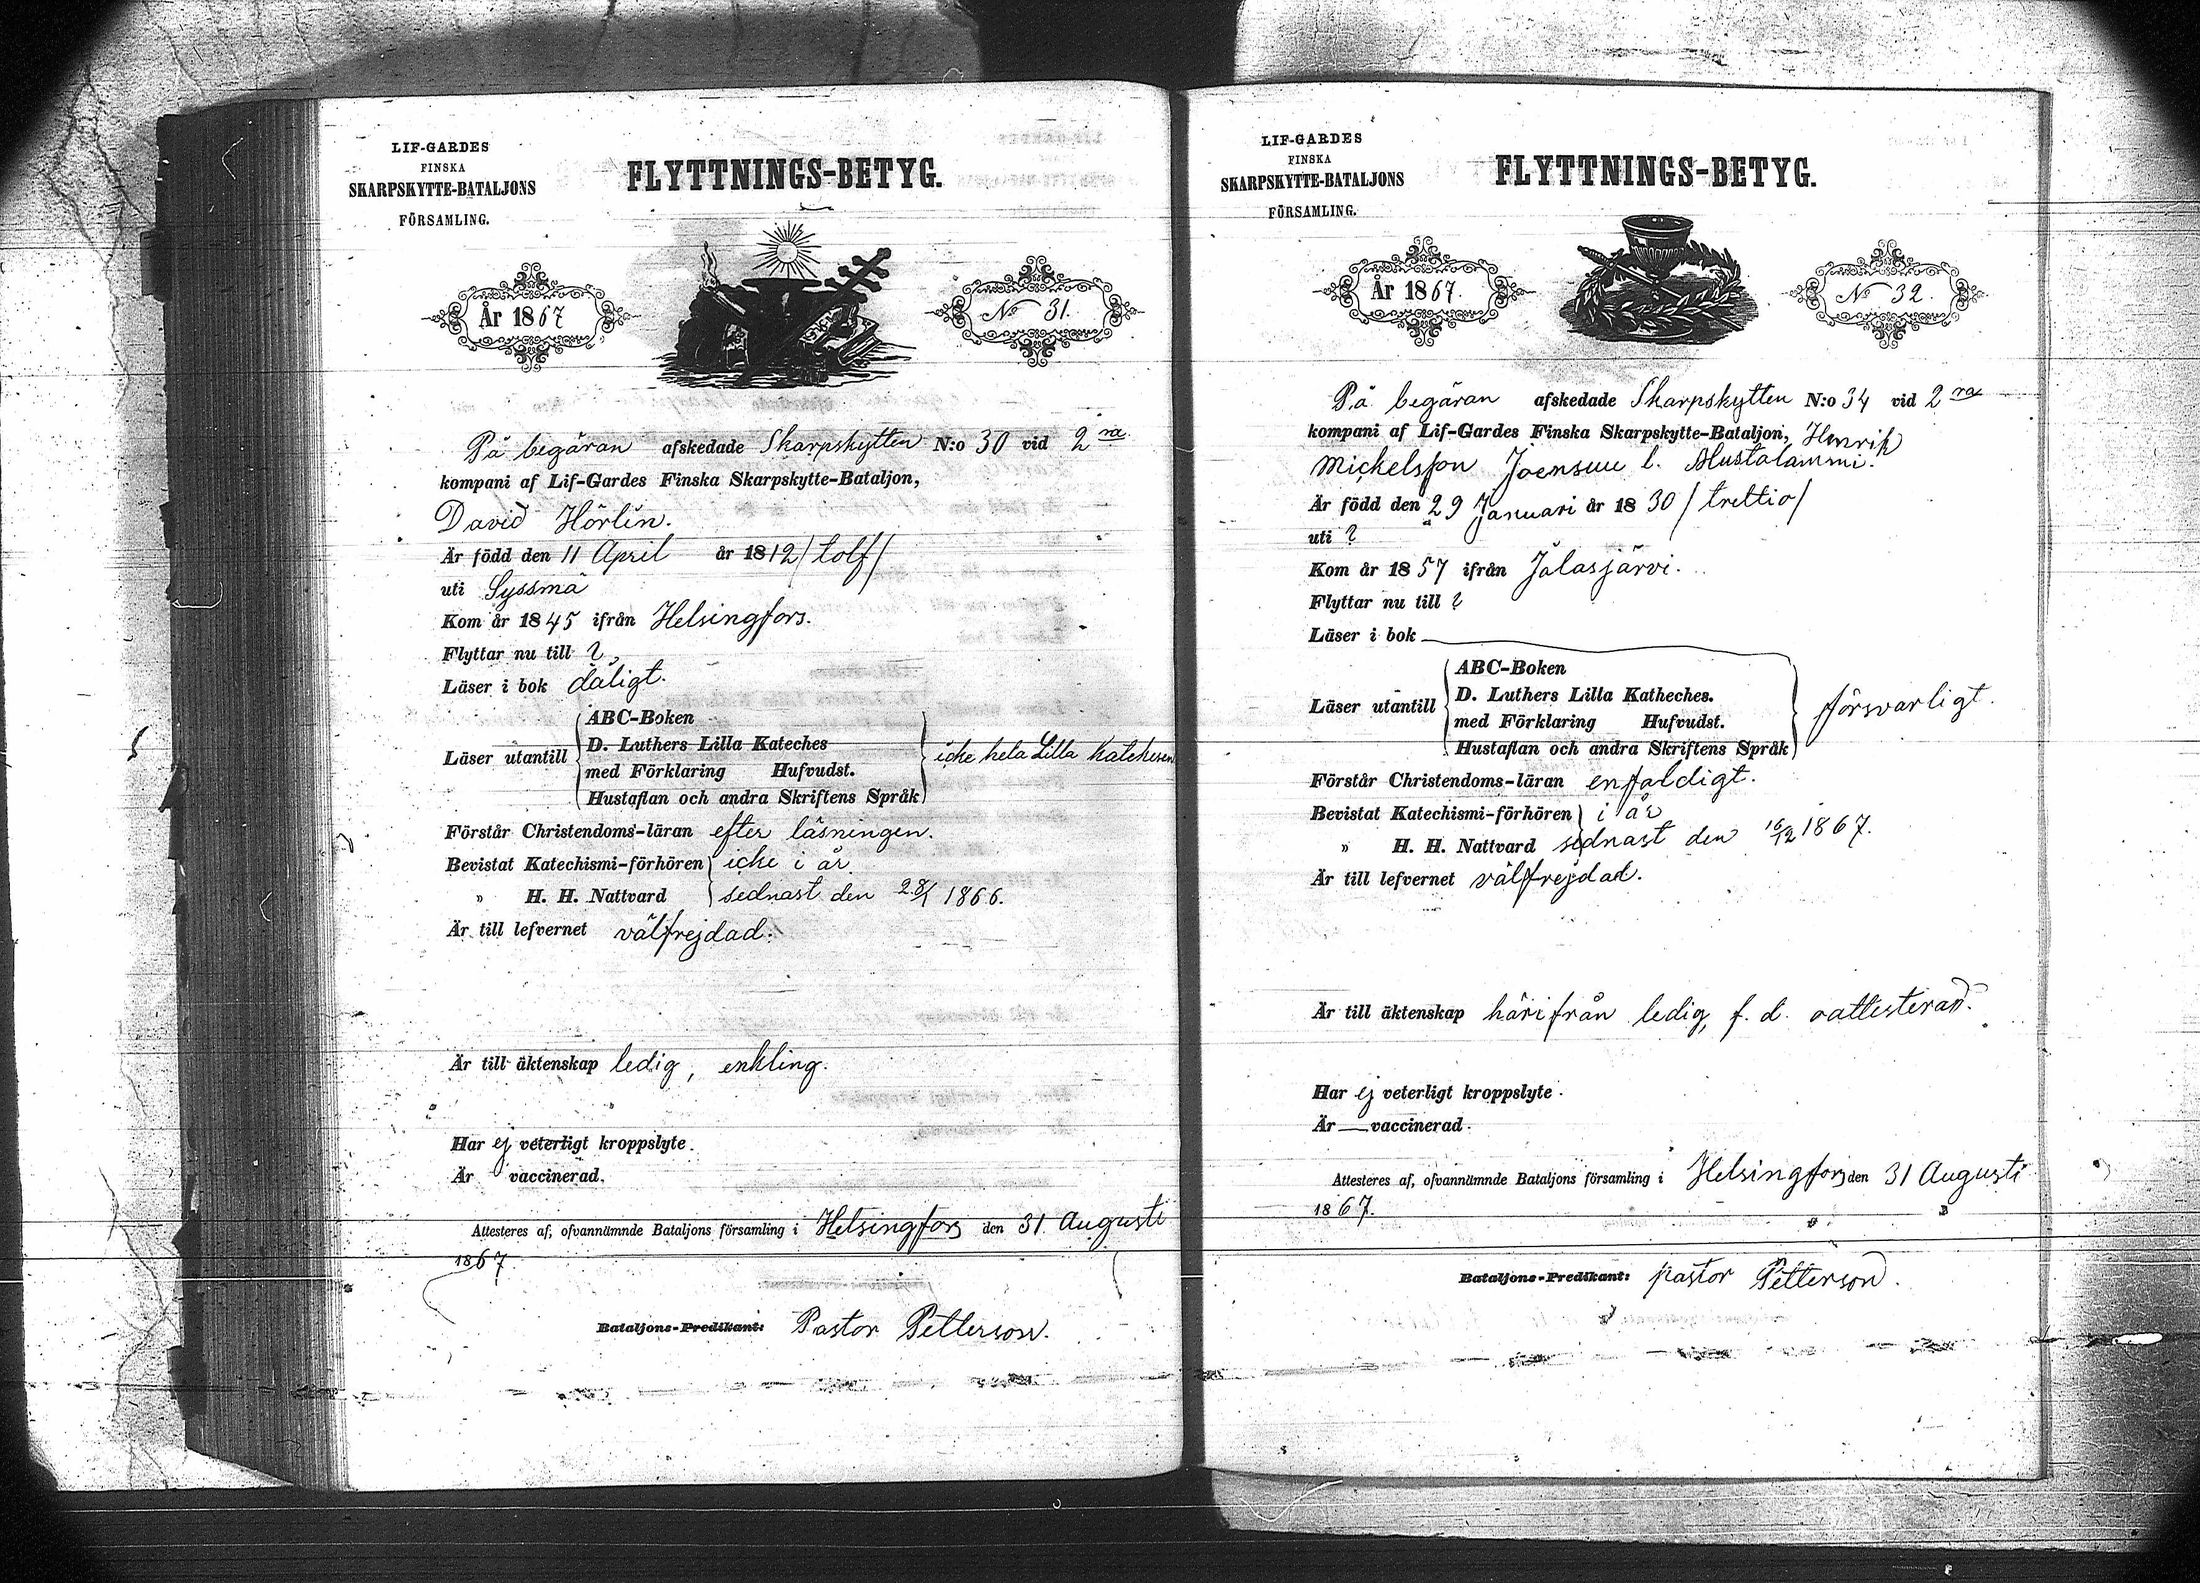 LIF-GARDES
FINSKA
SKARPSKYTTE-BATALJONS
FÖRSAMLING.
FLYTTNINGS-BETYG.
År 1867
No 31.
På begäran afskedade Skarpskytten N:o 30 vid 2ra
kompani af Lif-Gardes Finska Skarpskytte-Bataljon,
David Hörlin.
Är född den 11 April år 1812 / tolf /
uti Syssmä
Kom år 1845 ifrån Helsingfors.
Flyttar nu till ?
Läser i bok dåligt.
Läser utantill
ABC-Boken
D. Luthers Lilla Kateches
med Förklaring Hufvudst.
Hustaflan och andra Skriftens Språk
icke hela Lilla Katekesen
Förstår Christendoms-läran efter läsningen.
Bevistat Katechismi-förhören icke i år
" H. H. Nattvard sednast den 1866.
Är till lefvernet välfrejdad.
Är till äktenskap ledig, enkling.
Har ej veterligt kroppslyte.
Är vaccinerad.
Attesteres af, ofvannämnde Bataljons församling i Helsingfors den 31. Augusti
1867.
Bataljons-Predikant: Pastor Petterson.
LIF-GARDES
FINSKA
SKARPSKYTTE-BATALJONS
FÖRSAMLING.
FLYTTNINGS-BETYG.
År 1867.
No 32.
På begäran afskedade Skarpskytten N:o 34 vid 2ra
kompani af Lif-Gardes Finska Skarpskytte-Bataljon, Henrik
Mickelsson Joensuu l. Mustalammi.
Är född den 29 Januari år 1830 / trettio /
uti ?
Kom år 1857 ifrån Jalasjärvi.
Flyttar nu till ?
Läser i bok
Läser utantill
ABC-Boken
D. Luthers Lilla Katheches.
med Förklaring Hufvudst.
Hustaflan och andra Skriftens Språk
försvarligt.
Förstår Christendoms-läran enfaldigt.
Bevistat Katechismi-förhören i år
" H. H. Nattvard sednast den 1867.
Är till lefvernet välfrejdad.
Är till äktenskap härifrån ledig, f. d. oattesterad.
Har ej veterligt kroppslyte.
Är — vaccinerad.
Attesteres af, ofvannämnde Bataljons församling i Helsingfors den 31 Augusti
1867.
Bataljons-Predikant: pastor Petterson.